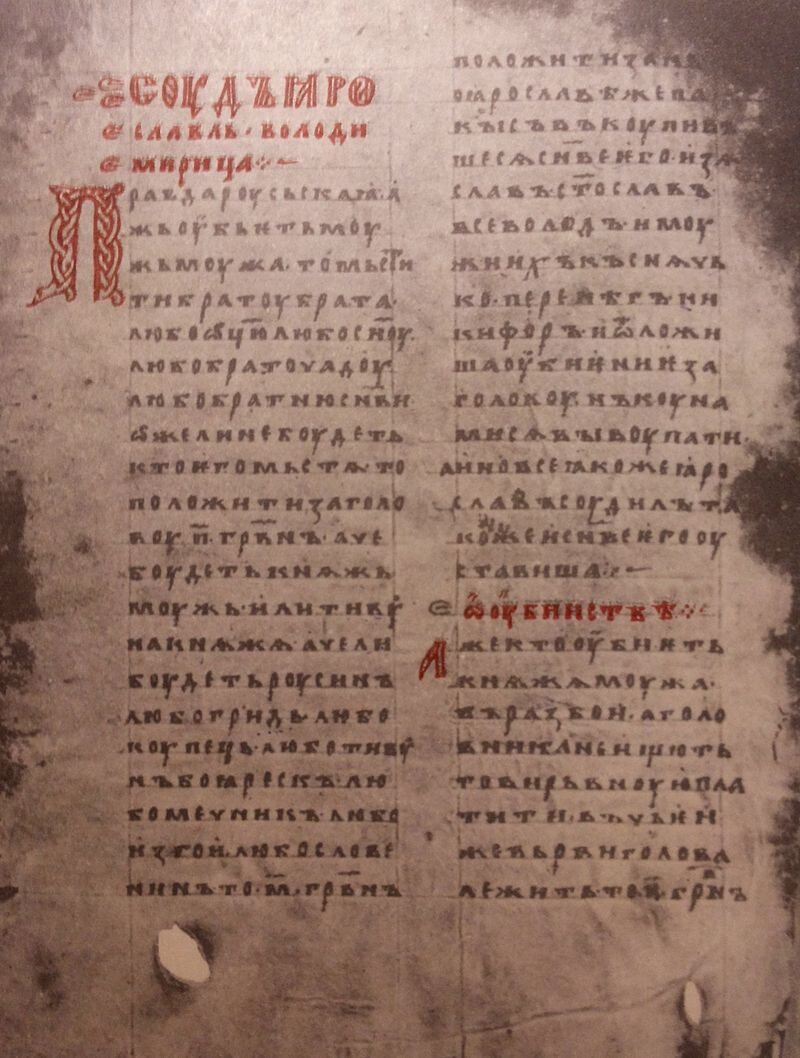 СОУДЪ ꙖРО
СЛАВЛЬ · ВОЛОДИ
МИРИЦА
Правда роусьскаꙗ · а
жь оубьить моу
жь моужа · то мьсти
ти братоу брата ·
любо ѡц҃ю любо сн҃оу ·
любо братоучадоу ·
любо братню сн҃ви
ѡже ли не боудеть
кто ѥго мьстѧ · то
положити за голо
воу · п҃ · грв҃нъ · аче
боудеть кнѧжь
моужь · или тивоу
на кнѧжа · аче ли
боудеть роусинъ
любо гридь · любо
коупець · любо тивоу
нъ боꙗрескъ · лю
бо мечникъ · любо
изгои · любо слове
нинъ · то · м҃ · грв҃нъ
положити за нь
о ꙗрославѣ же па
кы съвъкоупивъ
шесѧ сн҃ве ѥго · изѧ
славъ ст҃ославъ ·
всеволодъ · и моу
жи ихъ къснѧчь
ко · перенѣгъ ни
кифоръ · и ѿложи
ша оубиѥниѥ за
головоу · нъ коуна
ми сѧ выкоупати ·
а ино все ꙗкоже ꙗро
славъ соудилъ та
коже и сн҃ве ѥго оу
ставиша
ѡ оубииствѣ
Аже кто оубиѥть
кнѧжа моужа ·
въ разбои · а голо
вника не ищють
то вирьвноую пла
тити · въ чьѥи
же вьрви голова
лежить то · п҃ · грв҃нъ